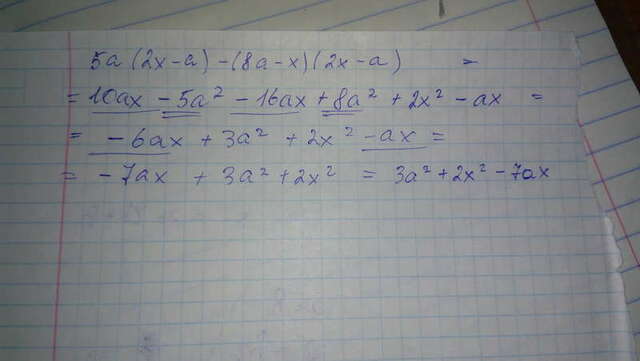 5a(2x-a)-(8a-x)(2x-a) =
= 10ax - 5a² - 16ax + 8a² + 2x² - ax =
= - 6ax + 3a² + 2x² - ax =
= - 7ax + 3a² + 2x² = 3a² + 2x² - 7ax